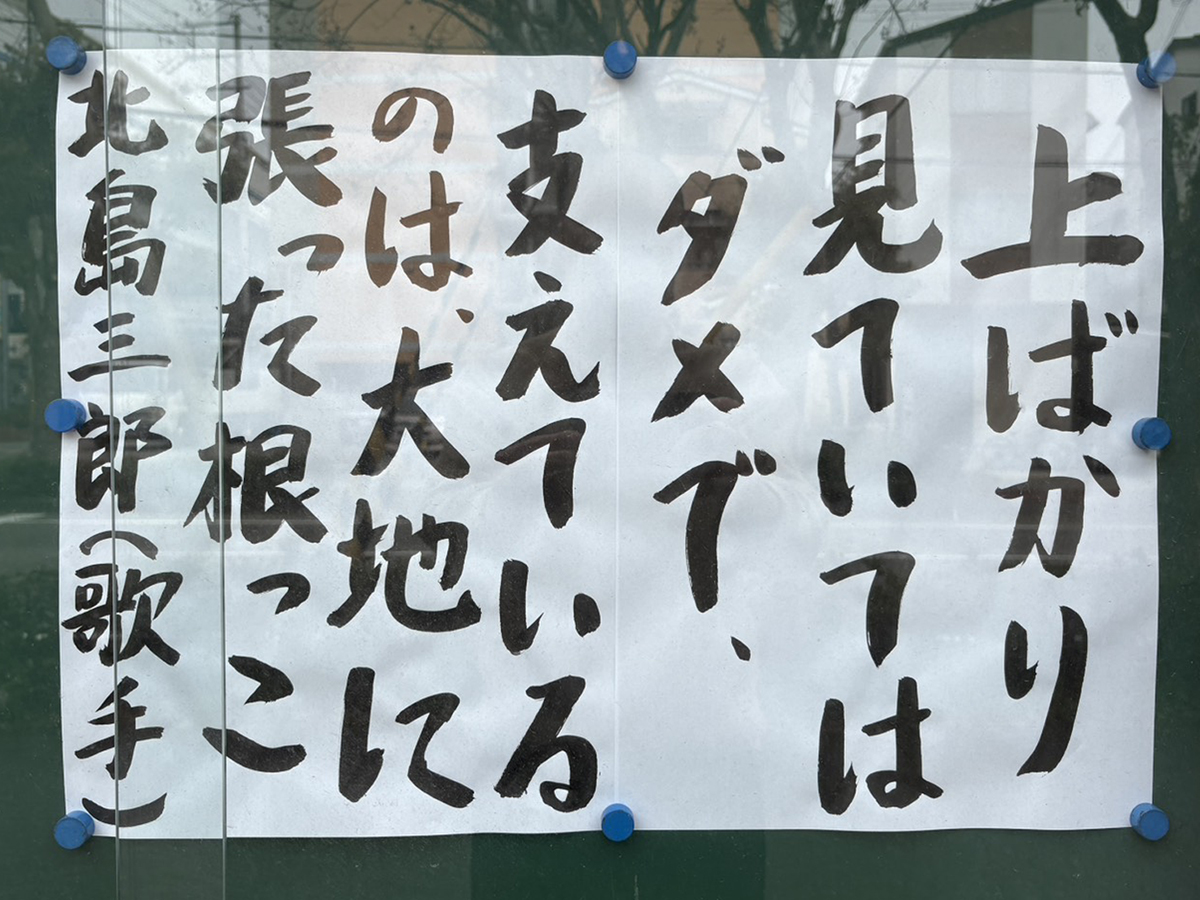 上ばかり
見ていては
ダメで、
支えている
のは、大地に
張った根っこ
北島三郎（歌手）